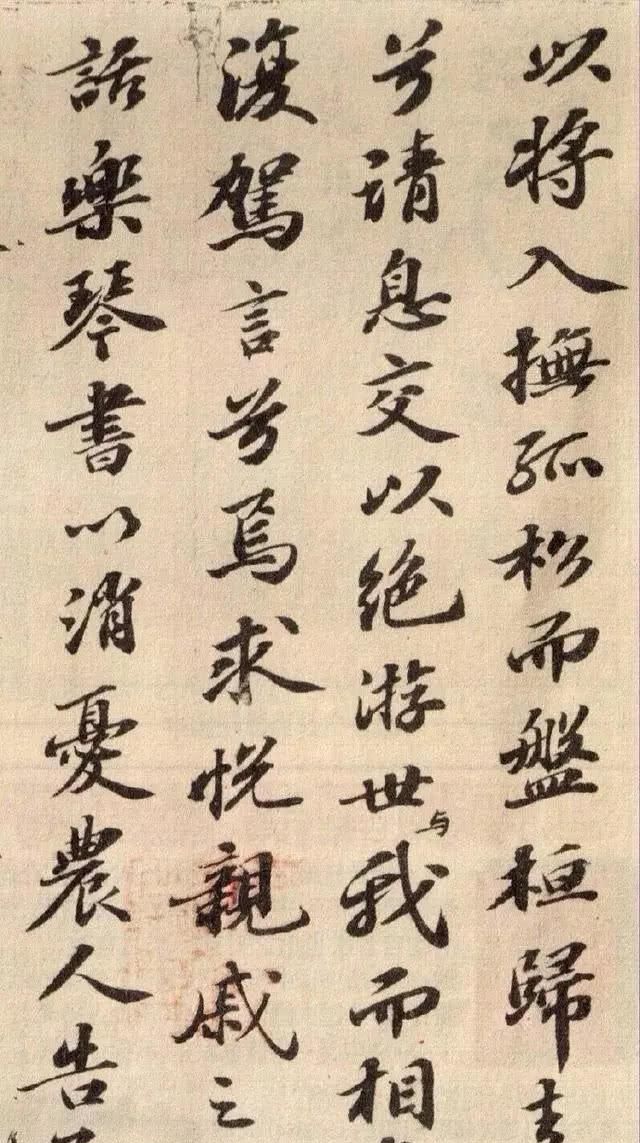 以将入撫孤松而盤桓歸
兮請息交以絕游世与我而相
復駕言兮焉求悅親戚之
話樂琴書以消憂農人告